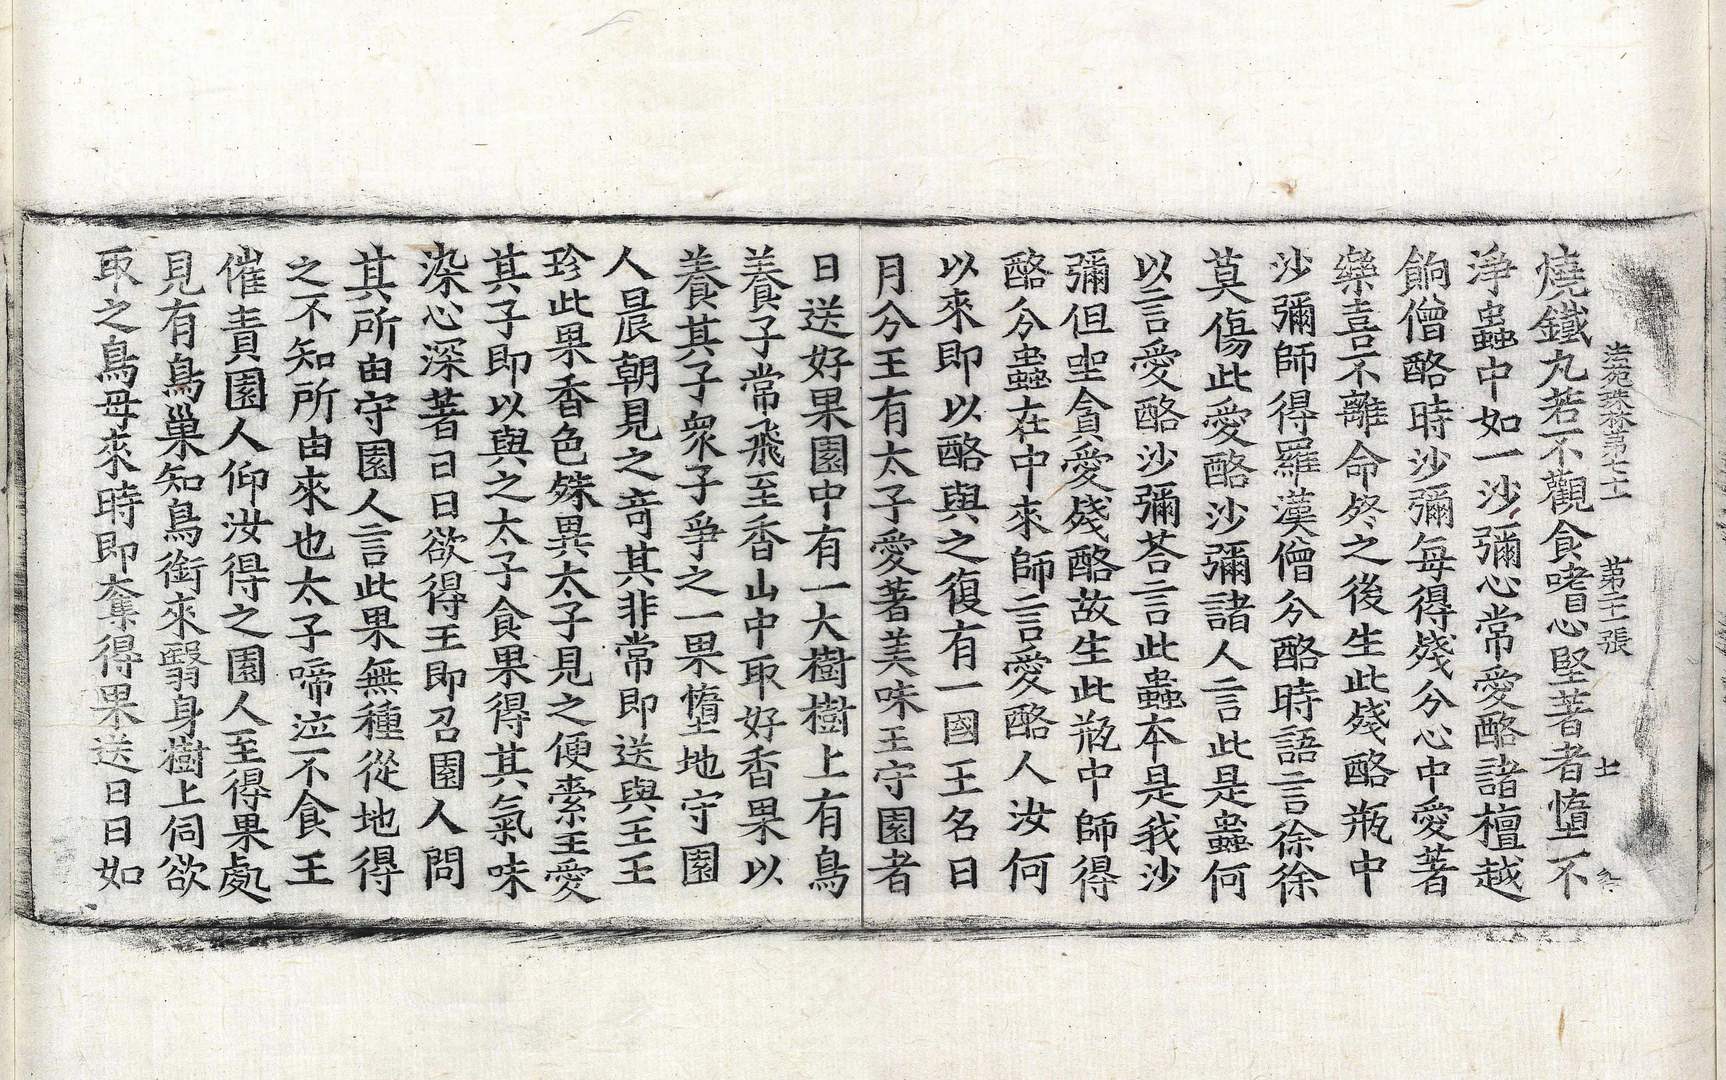 燒鐵丸若不觀食嗜心堅著者墮不
法苑珠林第七十 第二十一張 土
淨蟲中如一沙彌心常愛酪諸檀越
餉僧酪時沙彌每得殘分心中愛著
樂喜不離命終之後生此殘酪瓶中
沙彌師得羅漢僧分酪時語言徐徐
莫傷此愛酪沙彌諸人言此是蟲何
以言愛酪沙彌荅言此蟲本是我沙
彌但坐貪愛殘酪故生此瓶中師得
酪分蟲在中來師言愛酪人汝何
以來即以酪與之復有一國王名曰
月分王有太子愛著美味王守園者
日送好果園中有一大樹樹上有鳥
養子常飛至香山中取好香果以
養其子衆子爭之一果墮地守園
人晨朝見之竒其非常即送與王王
珍此果香色殊異太子見之便索王愛
其子即以與之太子食果得其氣味
染心深著日日欲得王即召園人問
其所由守園人言此果無種從地得
之不知所由來也太子啼泣不食王
催責園人仰汝得之園人至得果處
見有鳥巢知鳥銜來翳身樹上伺欲
取之鳥母來時即奪得果送日日如